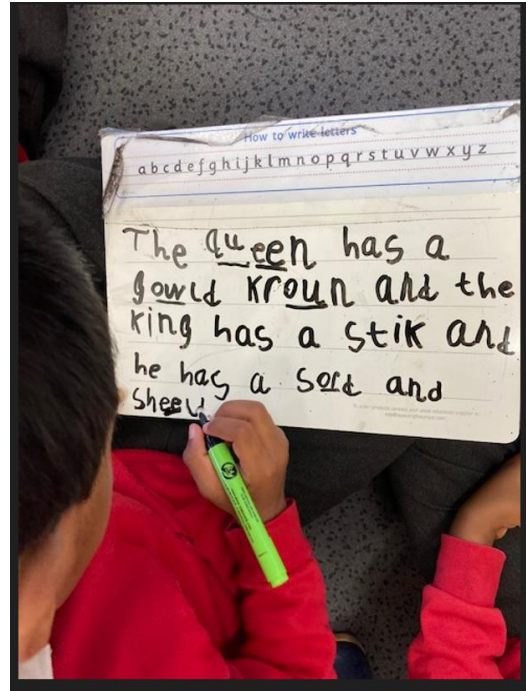 How to write letters
a b c d e f g h i j k l m n o p q r s t u v w x y z
The queen has a
gowld kroun and the
king has a stik and
he has a sord and